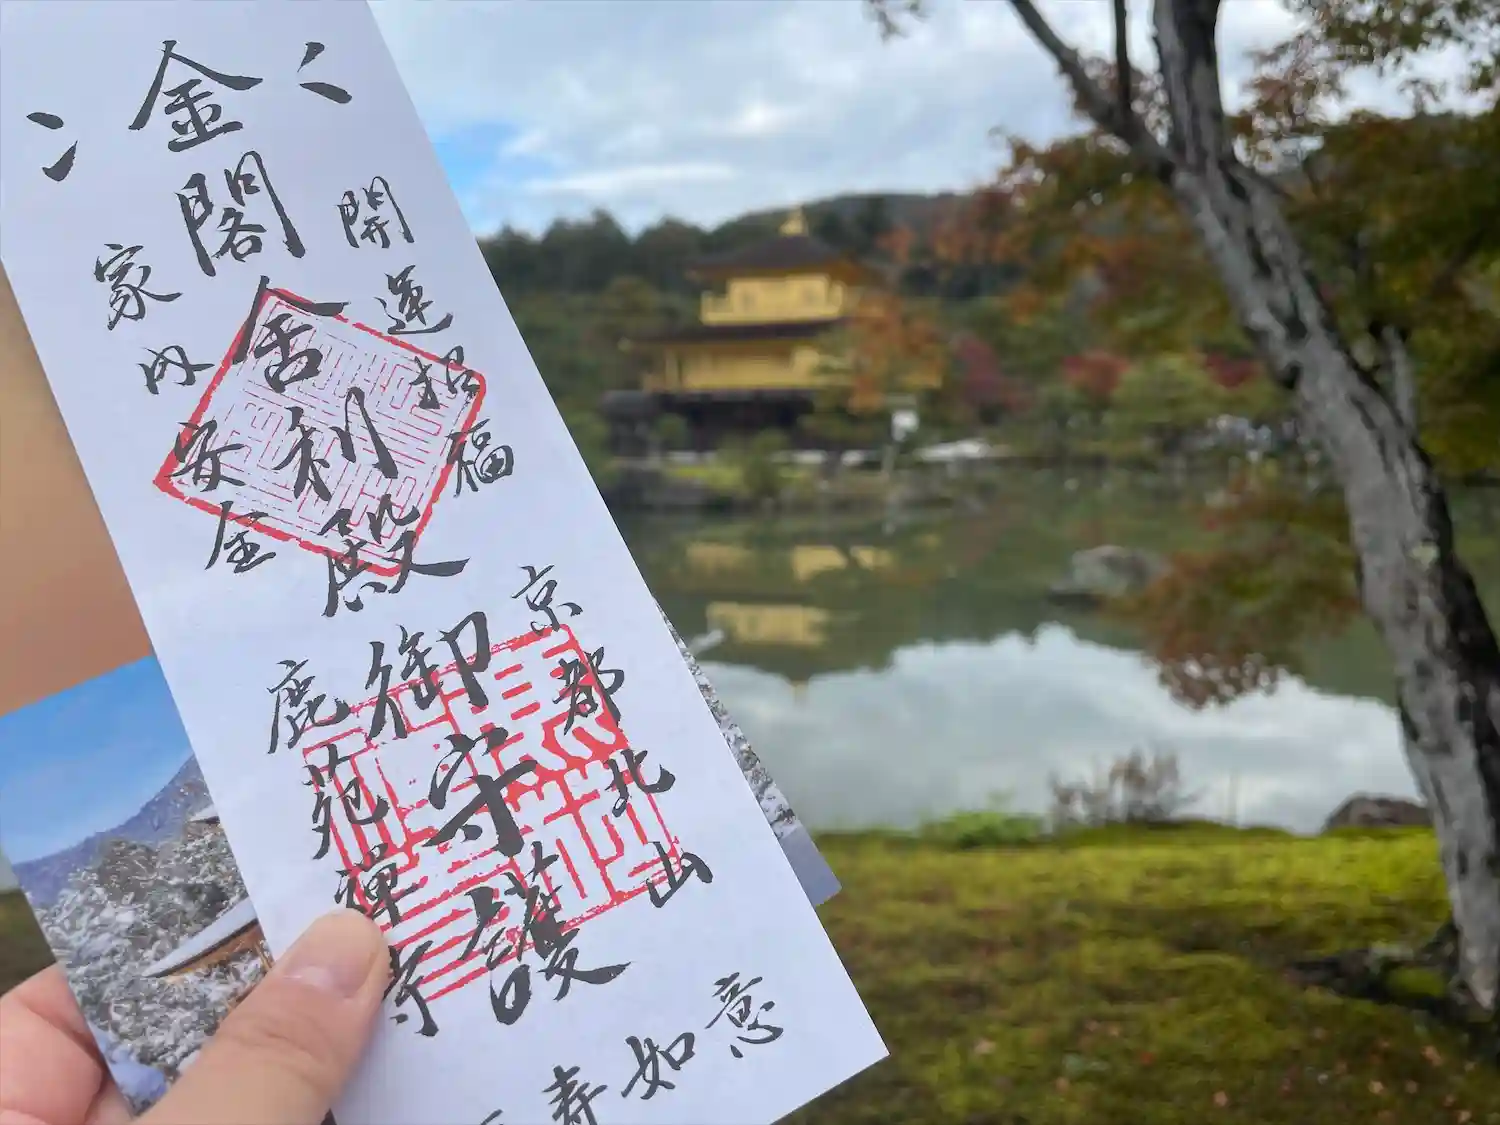 金閣舎利殿御守護
開運招福
家内安全
京都北山
鹿苑禅寺
寿如意